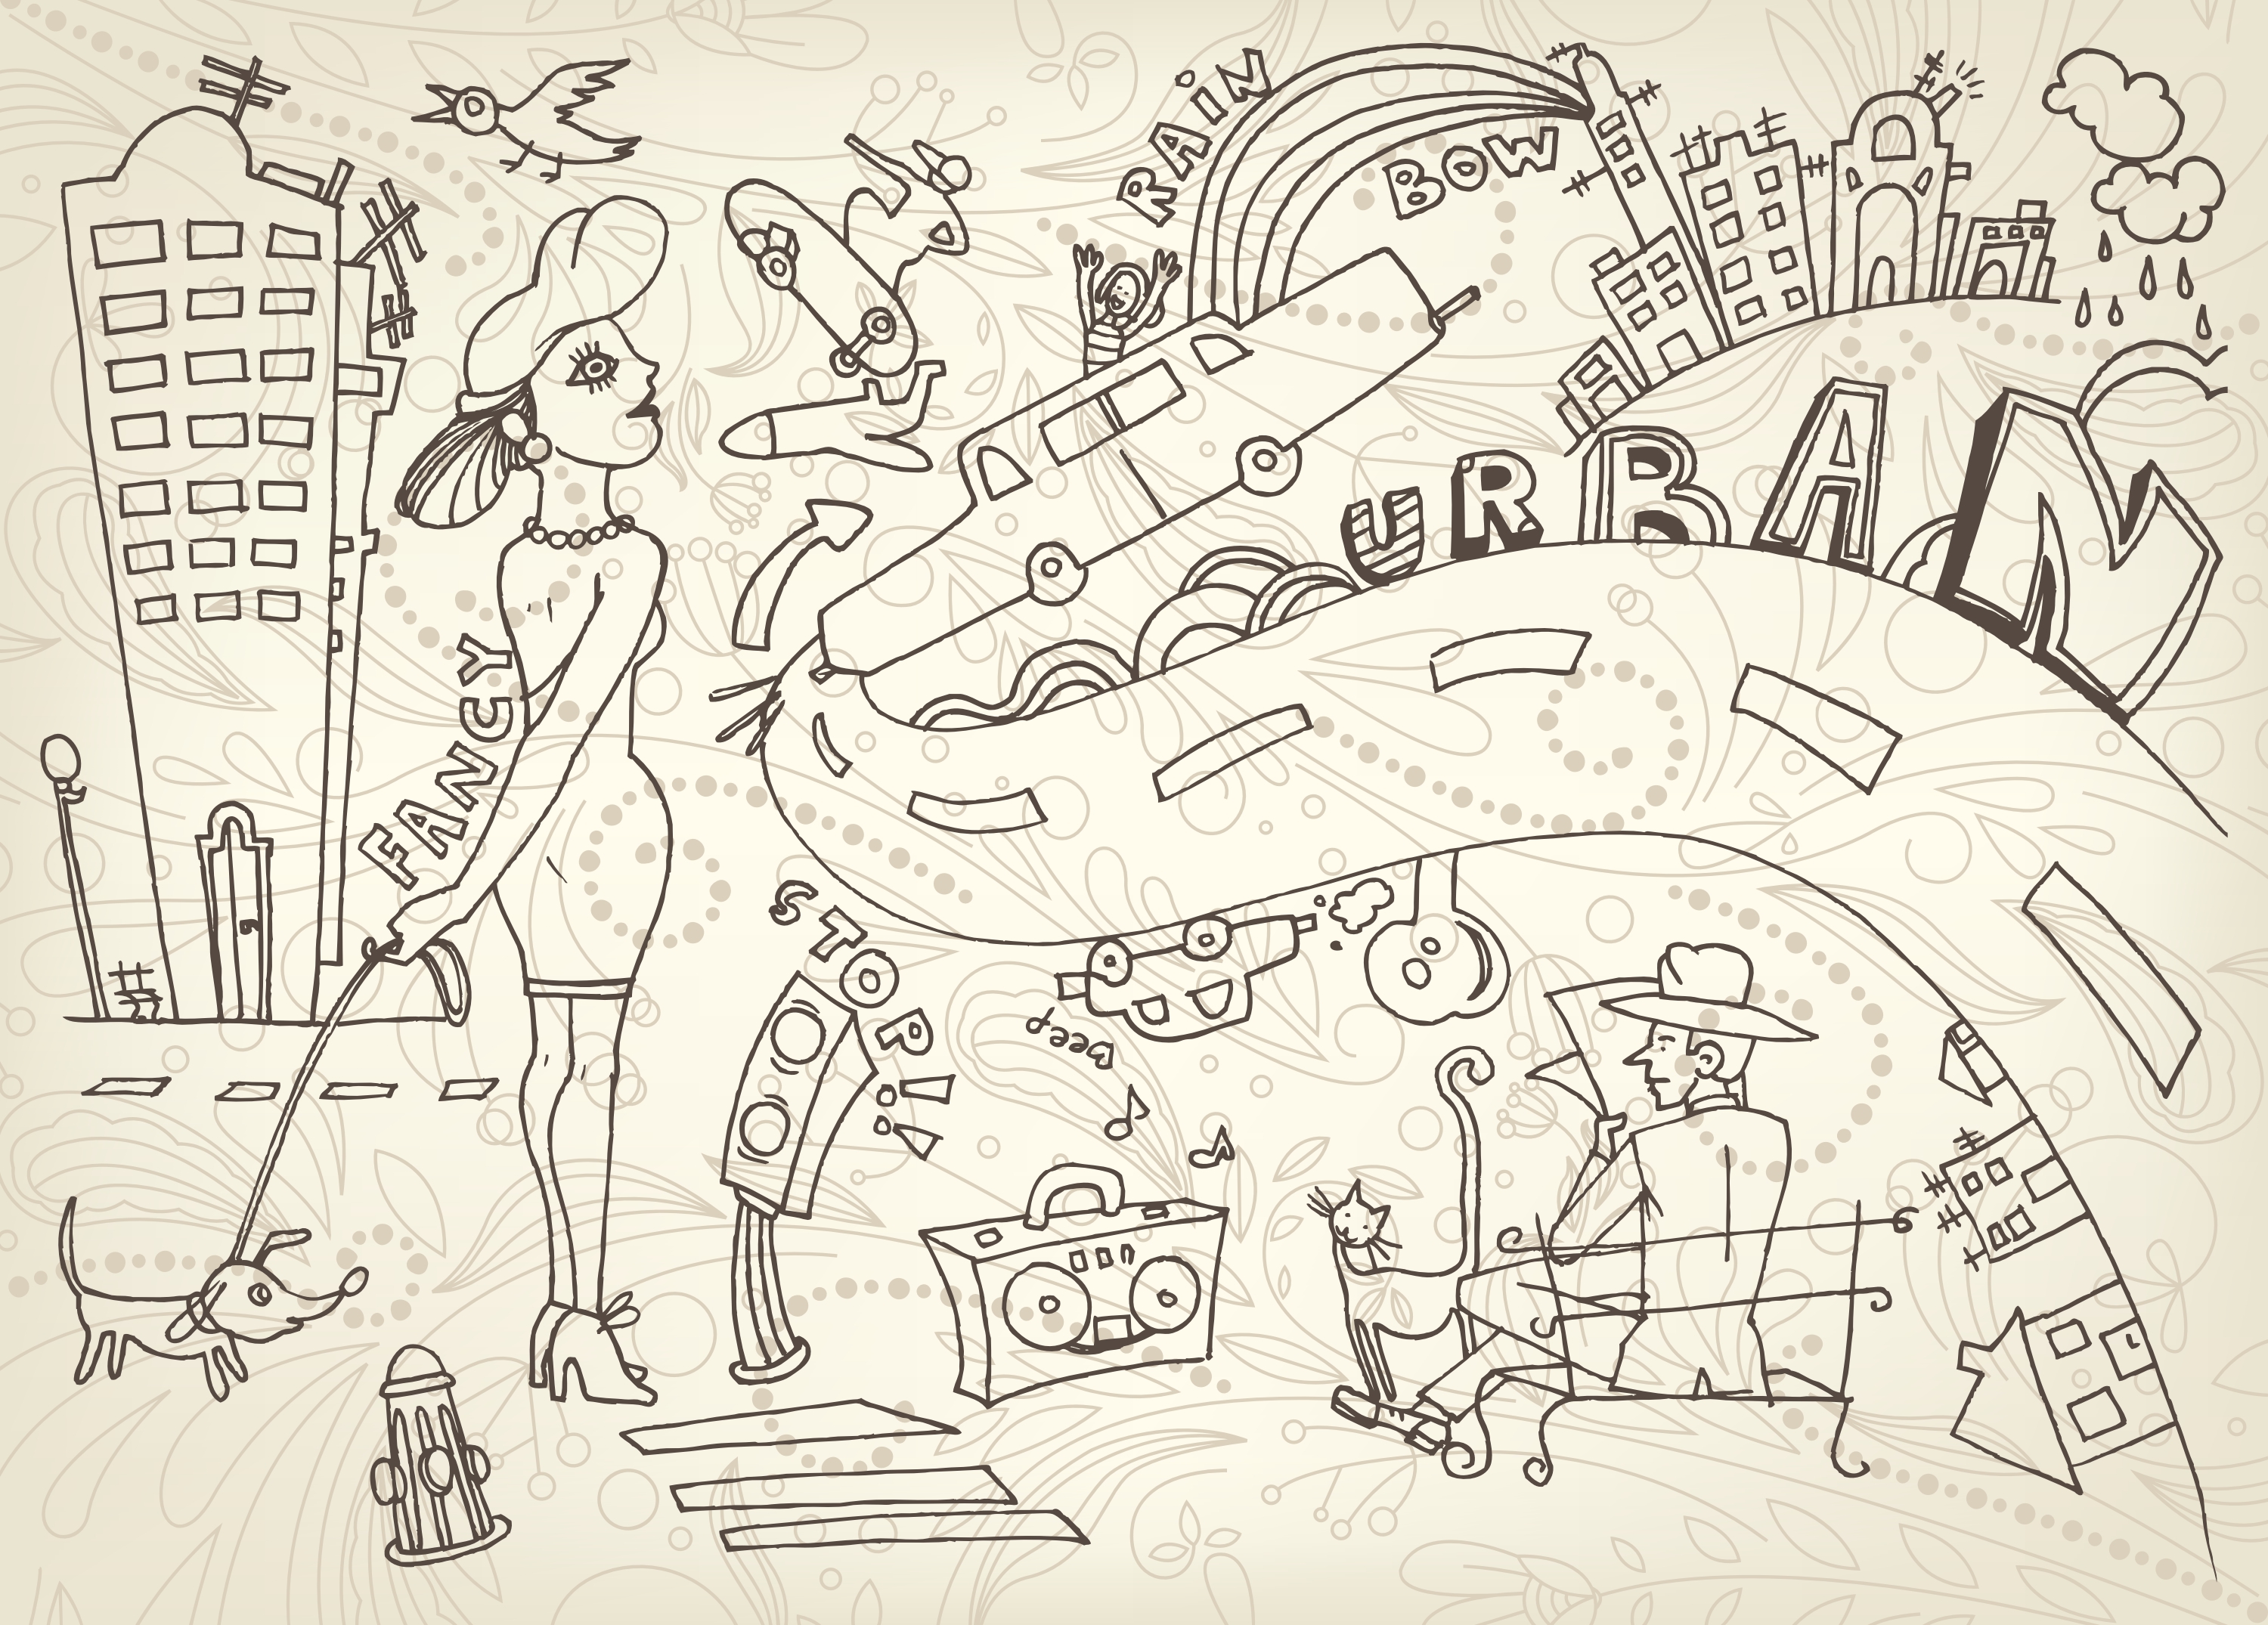 RAiN
BOW
URBAN
FANCY
STOP!!
beep